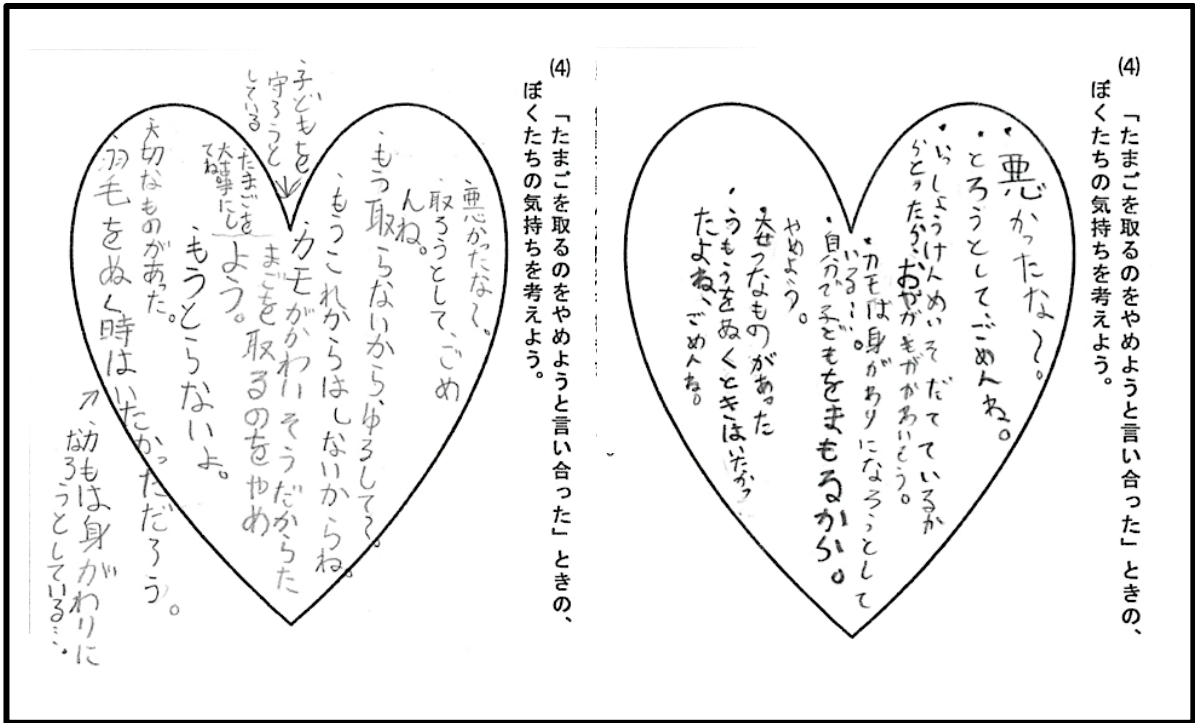 (4) 「たまごを取るのをやめようと言い合った」ときの、
ぼくたちの気持ちを考えよう。
・悪かったな〜。
・とろうとして、ごめんね。
・いっしょうけんめいそだてているか
らとったから、おやがもががかわいそう。
・カモは身がわりになろうとして
いる…。
・自分で子どもをまもるから。
やめよう。
・大せつなものがあった
・うもうをぬくときはいたかっ
たよね、ごめんね。
(4) 「たまごを取るのをやめようと言い合った」ときの、
ぼくたちの気持ちを考えよう。
・悪かったな〜。
取ろうとして、ごめ
んね。
・もう取らないから、ゆるして〜。
・もうこれからはしないからね。
・カモがかわいそうだからた
まごを取るのをやめ
よう。
・子どもを
守ろうと
している
・たまごを
大事にし
てね。
・もうとらないよ。
大切なものがあった。
・羽毛をぬく時はいたかっただろう。
↗かもは身がわりに
なろうとしている…。